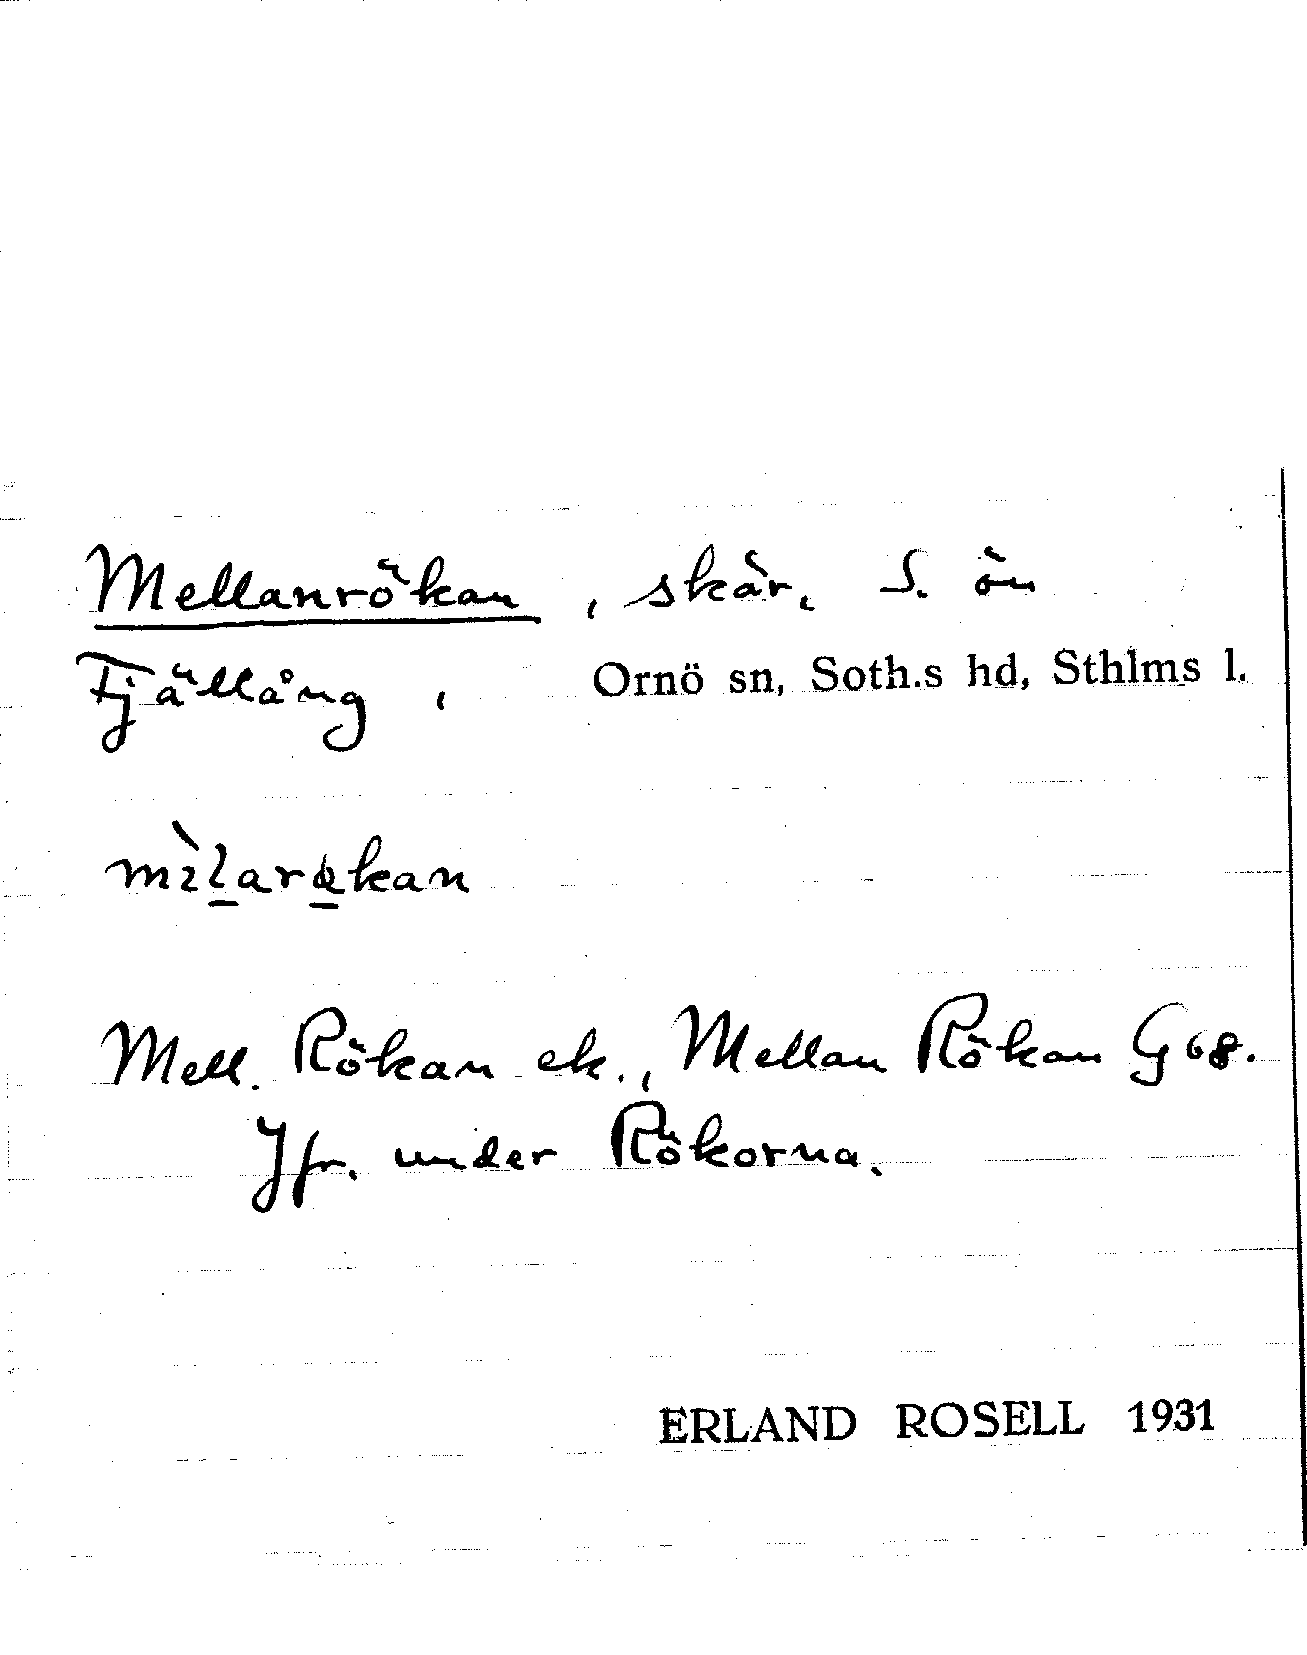 Mellanrökan, skär, S. ön
Fjällång, Ornö sn, Soth.s hd, Sthlms l.
Mell. Rökan ek., Mellan Rökan G 68.
Jfr. under Rökorna.
ERLAND ROSELL 1931